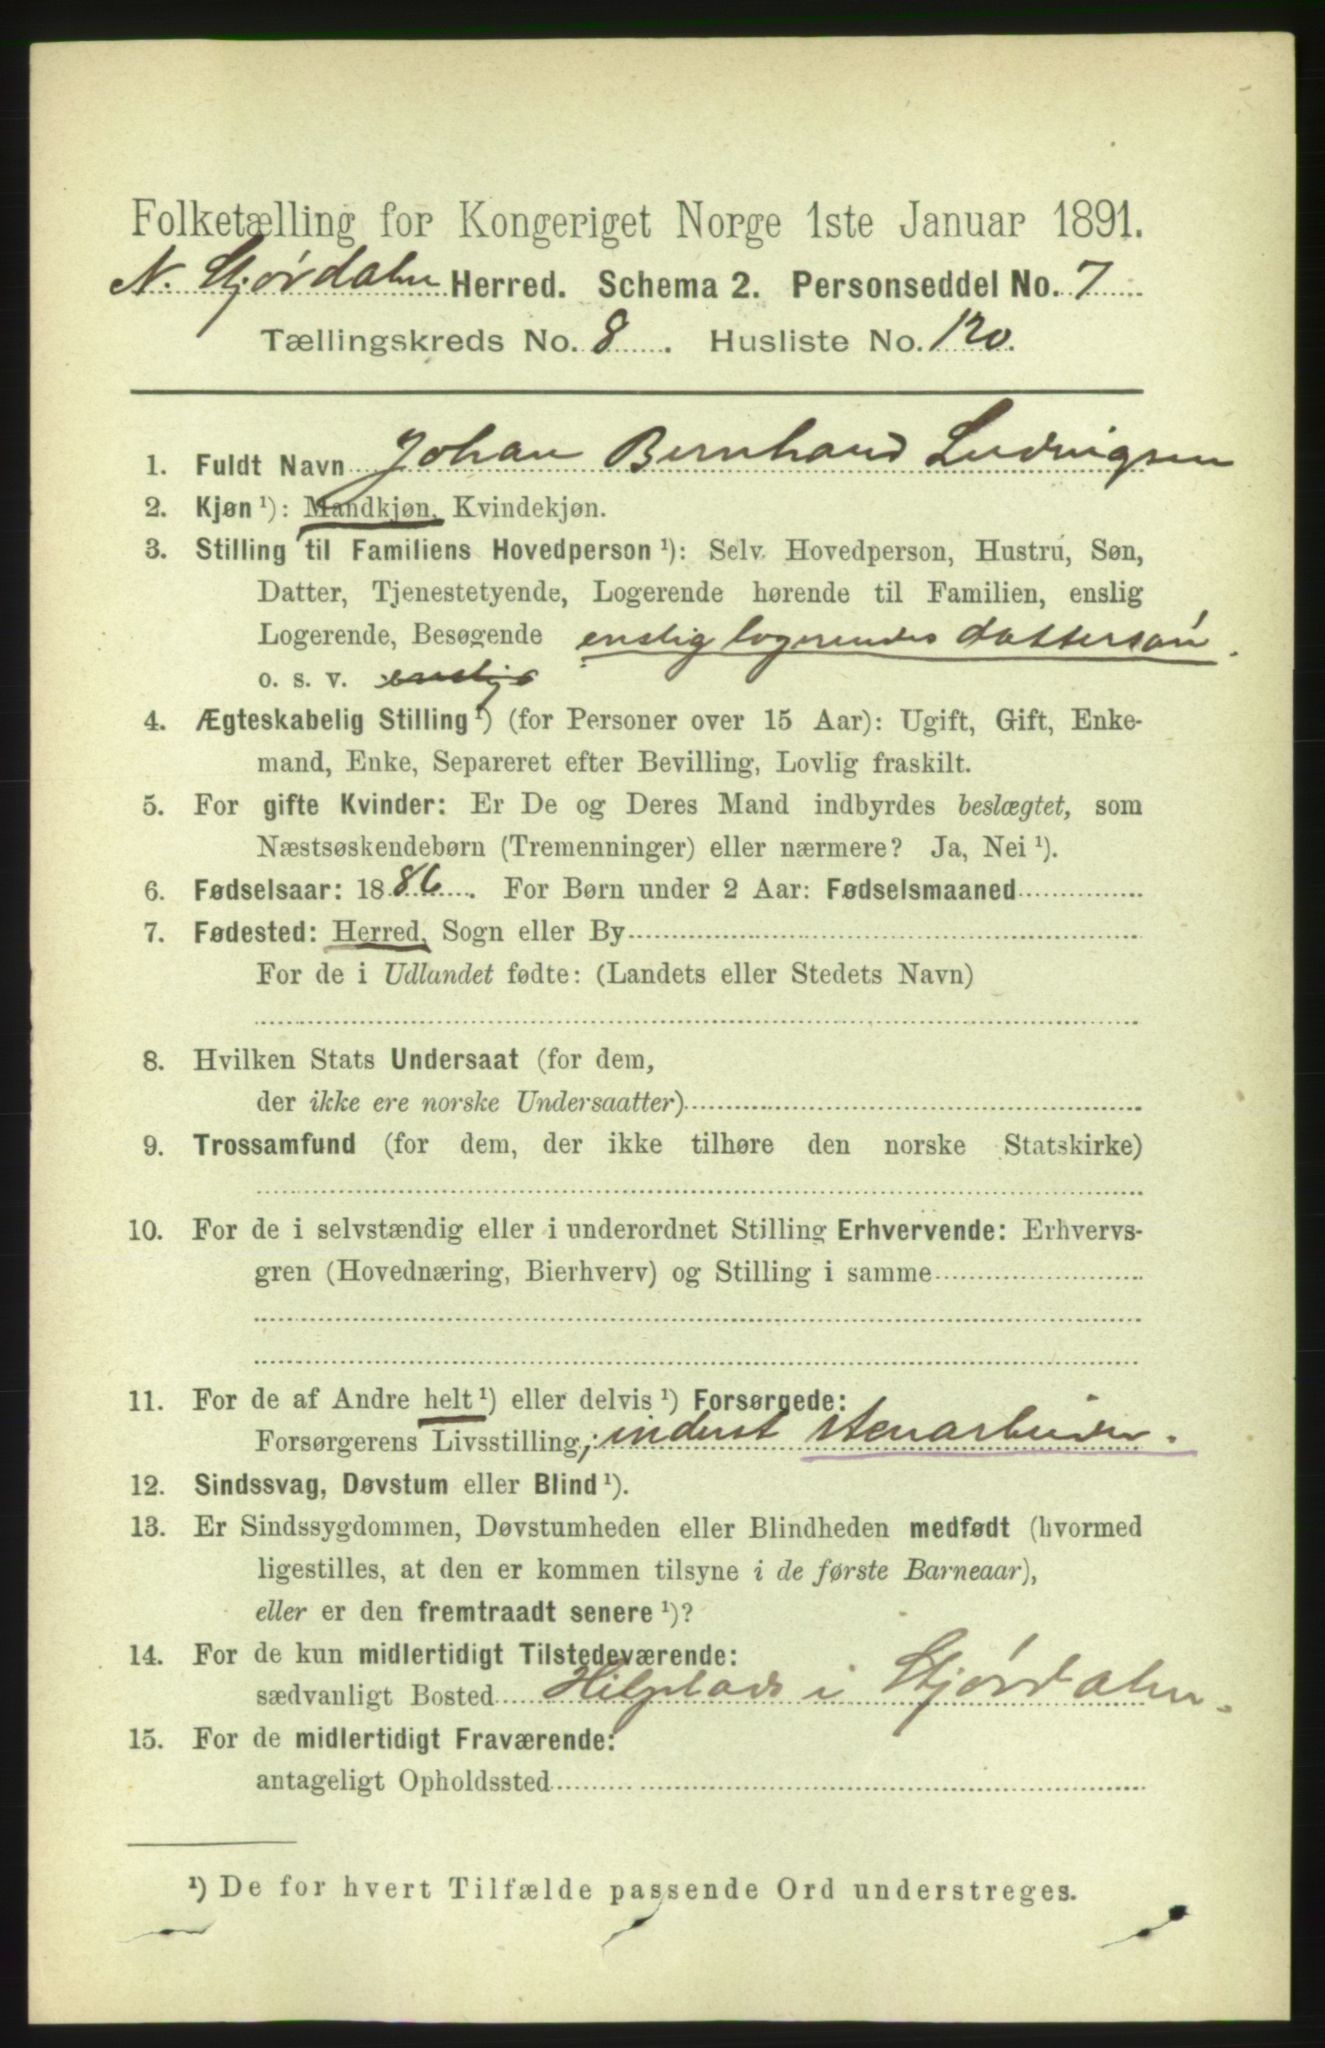 Folketælling for Kongeriget Norge 1ste Januar 1891.
N. Stjørdalen Herred. Schema 2. Personseddel No. 7
Tællingskreds No. 8. Husliste No. 120.
1. Fuldt Navn Johan Bernhard Ludvigsen
2. Kjøn ¹): Mandkjøn, Kvindekjøn.
3. Stilling til Familiens Hovedperson ¹): Selv Hovedperson, Hustru, Søn,
Datter, Tjenestetyende, Logerende hørende til Familien, enslig
Logerende, Besøgende enslig logerendes dattersøn.
o. s. v. enslig
4. Ægteskabelig Stilling ¹) (for Personer over 15 Aar): Ugift, Gift, Enke-
mand, Enke, Separeret efter Bevilling, Lovlig fraskilt.
5. For gifte Kvinder: Er De og Deres Mand indbyrdes beslægtet, som
Næstsøskendebørn (Tremenninger) eller nærmere? Ja, Nei ¹).
6. Fødselsaar: 1886. For Børn under 2 Aar: Fødselsmaaned
7. Fødested: Herred, Sogn eller By
For de i Udlandet fødte: (Landets eller Stedets Navn)
8. Hvilken Stats Undersaat (for dem,
der ikke ere norske Undersaatter)
9. Trossamfund (for dem, der ikke tilhøre den norske Statskirke)
10. For de i selvstændig eller i underordnet Stilling Erhvervende: Erhvervs-
gren (Hovednæring, Bierhverv) og Stilling i samme
11. For de af Andre helt ¹) eller delvis ¹) Forsørgede:
Forsørgerens Livsstilling; inderst stenarbeider.
12. Sindssvag, Døvstum eller Blind ¹).
13. Er Sindssygdommen, Døvstumheden eller Blindheden medfødt (hvormed
ligestilles, at den er kommen tilsyne i de første Barneaar),
eller er den fremtraadt senere ¹)?
14. For de kun midlertidigt Tilstedeværende:
sædvanligt Bosted i Stjørdalen.
15. For de midlertidigt Fraværende:
antageligt Opholdssted
¹) De for hvert Tilfælde passende Ord understreges.